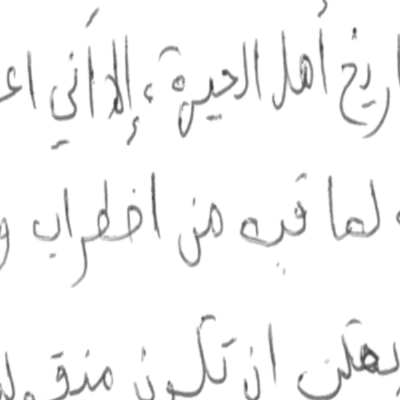 اريخ أهل الحيرة ، إلا أني اع
لما فيه من اضطراب و
يمكن ان تكون منقولة